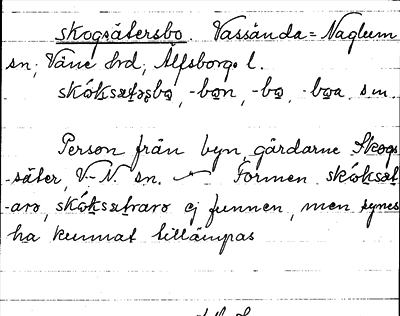 skogsätersbo. Vassända=Naglum
sn; Väne hrd; Älfsborgs l.
skóksætǝsbo̱, -bo̱n, -bo̱, -bo̱a. sm.
Person från byn, gårdarne Skogs-
-säter, V.-N. sn. — Formen skóksæt-
-arǝ, skóksætrarǝ ej funnen, men synes
ha kunnat tillämpas